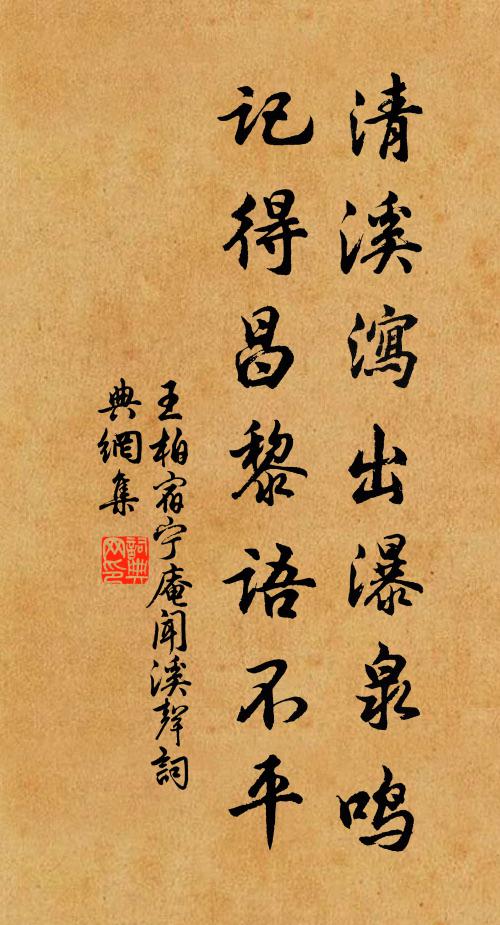 清溪瀉出瀑泉鸣
记得昌黎语不平
王柏宿宁庵闻溪聲詞
典網集
詞典网印